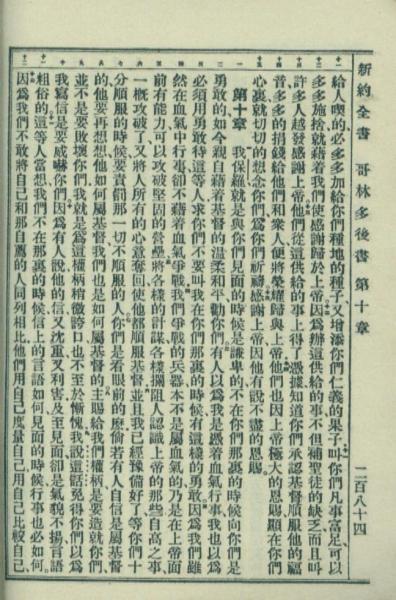 新約全書 哥林多後書 第十章 二百八十四
給人喫的必多多加給你們種地的種子又增添你們仁義的果子叫你們凡事富足可以
多多施捨就藉着我們使感謝歸於上帝因爲辦這供給的事不但補聖徒的缺乏而且叫
許多人越發感謝上帝他們從這供給的事上得了憑據知道你們承認基督順服他的福
音多多的捐錢給他們和衆人便將榮耀歸與上帝他們也因上帝極大的恩賜顯在你們
心裏就切切的想念你們爲你們祈禱感謝上帝因他有說不盡的恩賜
第十章 我保羅就是與你們見面的時候是謙卑的不在你們那裏的時候向你們是
勇敢的如今親自藉着基督的溫柔和平勸你們有人以爲我是憑着血氣行事我也以爲
必須用勇敢待這等人求你們不要叫我在你們那裏的時候有這樣的勇敢因爲我們雖
然在血氣中行事卻不藉着血氣爭戰我們爭戰的兵器本不是屬血氣的乃是在上帝面
前有能力可以攻破堅固的營壘將各樣的計謀各樣攔阻人認識上帝的那些自高之事
一概攻破了又將人所有的心意奪回使他都順服基督並且我已經豫備好了等你們十
分順服的時候要責罰那一切不順服的人你們是看眼前的麽倘若有人自信是屬基督
的他要再想想他如何屬基督我們也是如何屬基督的主賜給我們權柄是要造就你們
並不是要敗壞你們我就是爲這權柄稍微誇口也不至於慚愧我說這話免得你們以爲
我寫信是要威嚇你們因爲有人說他的信又沈重又利害及至見面卻是氣貌不揚言語
粗俗的這等人當想我們不在那裏的時候信上的言語如何見面的時候行事也必如何
因爲我們不敢將自己和那自薦的人同列相比他們用自己度量自己用自己比較自己